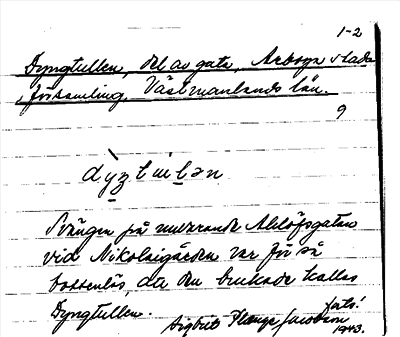 1-2
Dyngtullen, del av gata, Arboga stads
församling, Västmanlands län.
9
Svängen på nuvarande Ahllöfsgatan
vid Nikolaigården var förr så
bottenlös, att den brukade kallas
Dyngtullen.
forts!
Sigbrit Plænge Jacobson
1943.